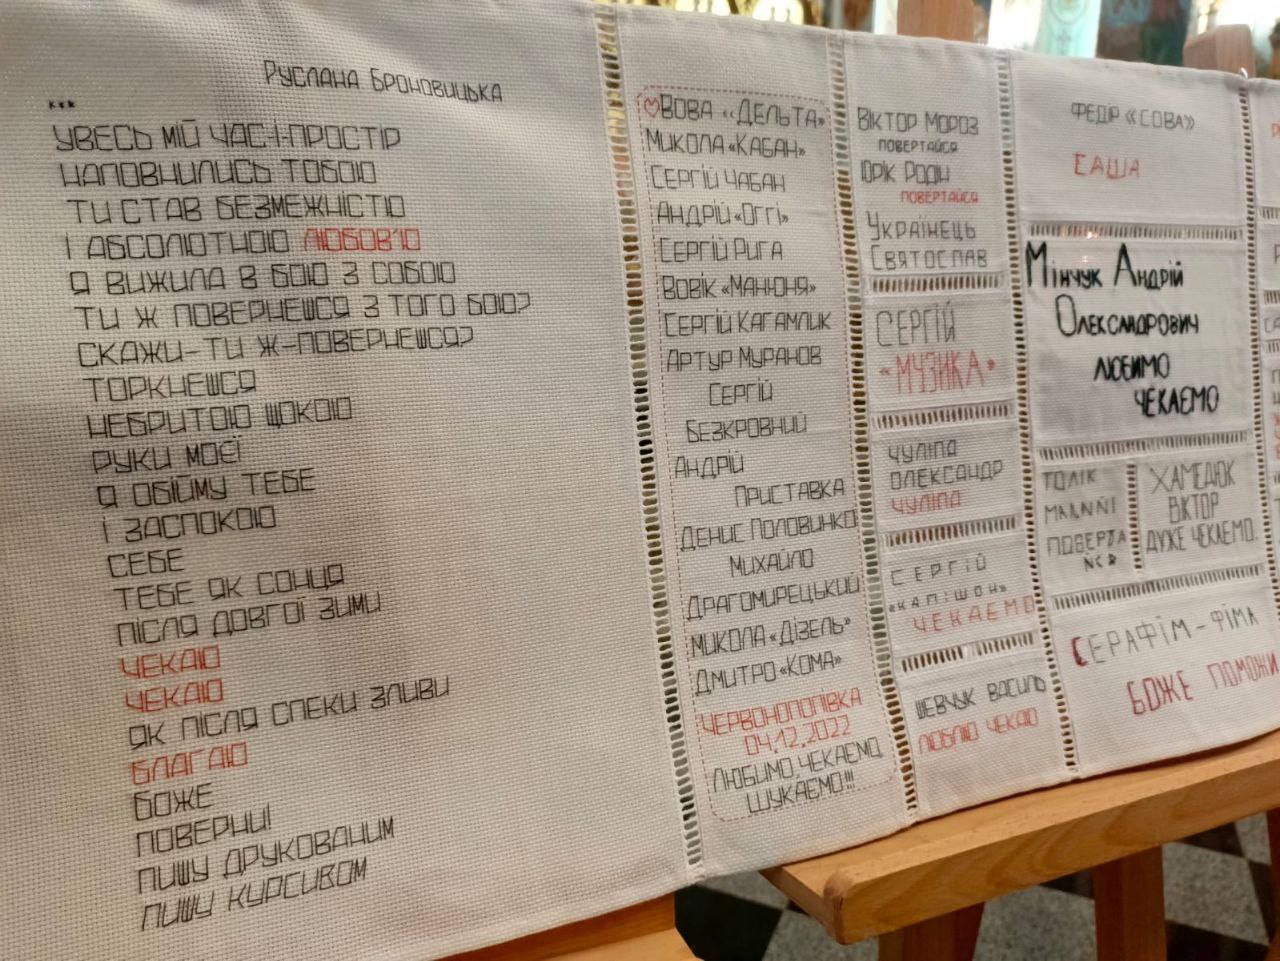 Руслана Броновицька
***
увесь мій час-і-простір
наповнились тобою
ти став безмежністю
і абсолютною любов'ю
я вижила в бою з собою
ти ж повернешся з того бою?
скажи-ти ж-повернешся?
торкнешся
небритою щокою
руки моєї
я обійму тебе
і заспокою
себе
тебе як сонця
після довгої зими
чекаю
чекаю
як після спеки зливи
благаю
Боже
поверни!
пишу друкованим
пишу курсивом
Вова «Дельта»
Микола «Кабан»
Сергій Чабан
Андрій «Оггі»
Сергій Рига
Вовік «Манюня»
Сергій Кагамлик
Артур Муранов
Сергій
Безкровний
Андрій
Приставка
Денис Половинко
Михайло
Драгомирецький
Микола «Дізель»
Дмитро «Кома»
Червонопопівка
04.12.2022
Любимо, чекаємо,
шукаємо!!!
Віктор Мороз
повертайся
Юрік Родін
повертайся
Українець
Святослав
Сергій
«Музика»
Чуліпа
Олександр
Чуліпа
Сергій
«Капішон»
чекаємо
Шевчук Василь
люблю чекаю
Федір «Сова»
Саша
Мінчук Андрій
Олександрович
любимо
чекаємо
Толік
Повертайся
Хамедюк
Віктор
дуже чекаємо.
Серафім-Фіма
Боже поможи